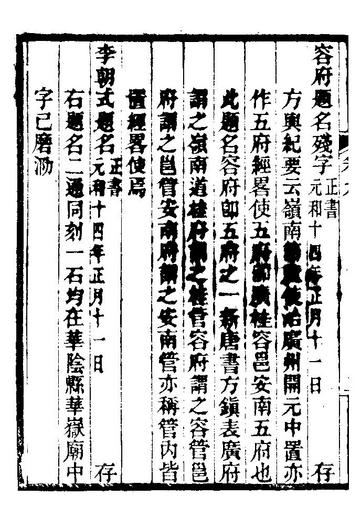 容府題名殘字正書元和十四年正月十一日 存
方輿紀要云嶺南節度使治廣州開元中置亦
作五府經畧使五府卽廣桂容邕安南五府也
此題名容府卽五府之一新唐書方鎮表廣府
謂之嶺南道桂府謂之桂管容府謂之容管邕
府謂之邕管安南府謂之安南管亦稱管內皆
置經畧使焉
李朝式題名正書元和十四年正月十一日 存
右題名二通同刻一石均在華陰縣華嶽廟中
字已磨泐